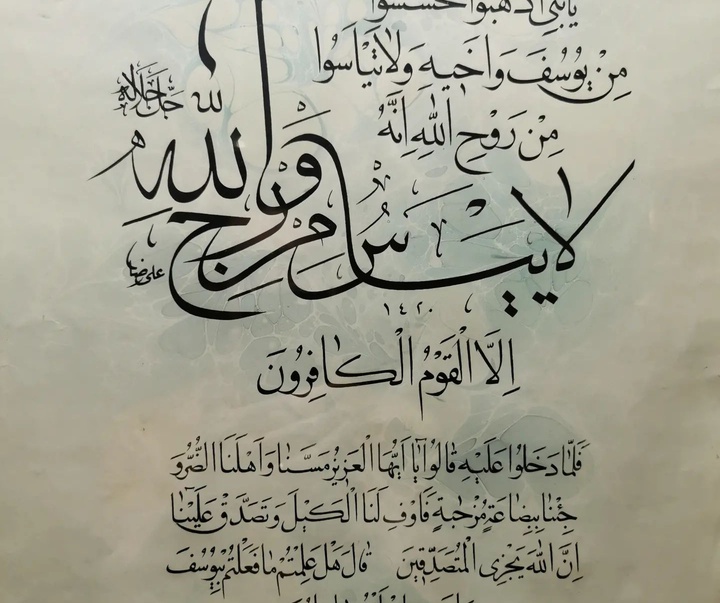 يَابَنِيَّ اذْهَبُوا فَتَحَسَّسُوا
مِنْ يُوسُفَ وَاَخ۪يهِ وَلَا تَيْاَسُوا
مِنْ رَوْحِ اللّٰهِ اِنَّهُ
لله جل جلاله
لَا يَيْاَسُ مِنْ رَوْحِ اللّٰهِ
علی رضا
١٤٢٠
اِلَّا الْقَوْمُ الْكَافِرُونَ
فَلَمَّا دَخَلُوا عَلَيْهِ قَالُوا يَا اَيُّهَا الْعَز۪يزُ مَسَّنَا وَاَهْلَنَا الضُّرُّ وَ
جِئْنَا بِبِضَاعَةٍ مُزْجٰيةٍ فَاَوْفِ لَنَا الْكَيْلَ وَتَصَدَّقْ عَلَيْنَا
اِنَّ اللّٰهَ يَجْزِي الْمُتَصَدِّق۪ينَ قَالَ هَلْ عَلِمْتُمْ مَا فَعَلْتُمْ بِيُوسُفَ